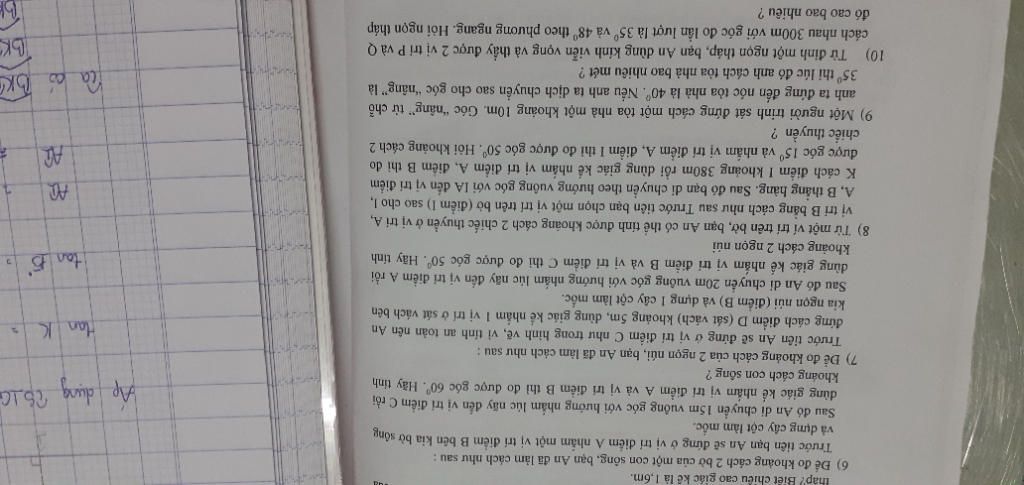 tháp? Biết chiều cao giác kế là 1,6m.
6) Để đo khoảng cách 2 bờ của một con sông, bạn An đã làm cách như sau :
Trước tiên bạn An sẽ đứng ở vị trí điểm A nhắm một vị trí điểm B bên kia bờ sông
và dựng cây cột làm mốc.
Sau đó An di chuyển 15m vuông góc với hướng nhắm lúc nãy đến vị trí điểm C rồi
dùng giác kế nhắm vị trí điểm A và vị trí điểm B thì đo được góc 60⁰. Hãy tính
khoảng cách con sông ?
7) Để đo khoảng cách của 2 ngọn núi, bạn An đã làm cách như sau :
Trước tiên An sẽ đứng ở vị trí điểm C như trong hình vẽ, vì tính an toàn nên An
đứng cách điểm D (sát vách) khoảng 5m, dùng giác kế nhắm 1 vị trí ở sát vách bên
kia ngọn núi (điểm B) và dựng 1 cây cột làm mốc.
Sau đó An di chuyển 20m vuông góc với hướng nhắm lúc nãy đến vị trí điểm A rồi
dùng giác kế nhắm vị trí điểm B và vị trí điểm C thì đo được góc 50⁰. Hãy tính
khoảng cách 2 ngọn núi
8) Từ một ví trí trên bờ, bạn An có thể tính được khoảng cách 2 chiếc thuyền ở vị trí A,
vị trí B bằng cách như sau Trước tiên bạn chọn một vị trí trên bờ (điểm I) sao cho I,
A, B thẳng hàng. Sau đó bạn di chuyển theo hướng vuông góc với IA đến vị trí điểm
K cách điểm I khoảng 380m rồi dùng giác kế nhắm vị trí điểm A, điểm B thì đo
được góc 15⁰ và nhắm vị trí điểm A, điểm I thì đo được góc 50⁰. Hỏi khoảng cách 2
chiếc thuyền ?
9) Một người trinh sát đứng cách một tòa nhà một khoảng 10m. Góc "nâng" từ chỗ
anh ta đứng đến nóc tòa nhà là 40⁰. Nếu anh ta dịch chuyển sao cho góc "nâng" là
35⁰ thì lúc đó anh cách tòa nhà bao nhiêu mét ?
10) Từ đỉnh một ngọn tháp, bạn An dùng kính viễn vọng và thấy được 2 vị trí P và Q
cách nhau 300m với góc đo lần lượt là 35⁰ và 48⁰ theo phương ngang. Hỏi ngọn tháp
đó cao bao nhiêu ?
Áp dụng
tan K =
tan 15⁰ =
AI
AI
Ta có